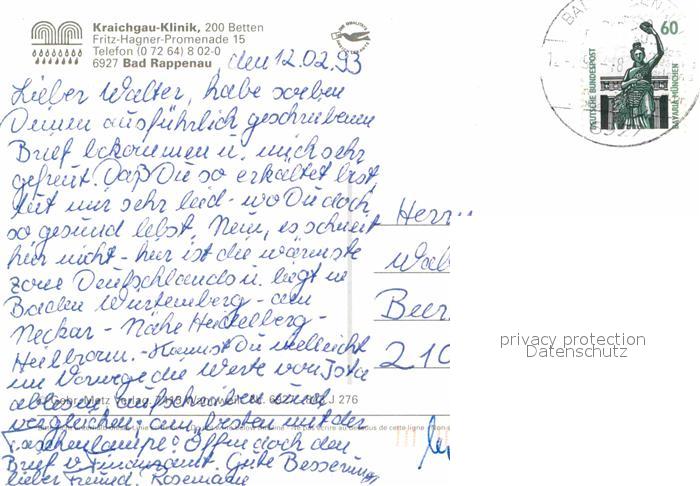 Kraichgau-Klinik, 200 Betten
Fritz-Hagner-Promenade 15
Telefon (0 72 64) 8 02-0
6927 Bad Rappenau
den 12.02.93
Lieber Walter, habe soeben
Deinen ausführlich geschriebenen
Brief bekommen u. mich sehr
gefreut. Daß Du so erkältet bist,
tut mir sehr leid - wo Du doch
so gesund lebst. Nein, es schneit
hier nicht - hier ist die wärmste
Zone Deutschlands u. liegt in
Baden Württemberg - am
Neckar - Nähe Heidelberg -
Heilbronn. - Kannst Du vielleicht
im Vorwege die Werte von Ista
ablesen, aufschreiben und
vergleichen; am besten mit der
Taschenlampe. Öffne doch den
Brief v. Finanzamt. Gute Besserung
lieber Freund. Rosemarie
Herr
Wal
Beer
210
60
DEUTSCHE BUNDESPOST
BAVARIA MÜNCHEN
privacy protection
Datenschutz
Gebr. Metz Verlag
J 276